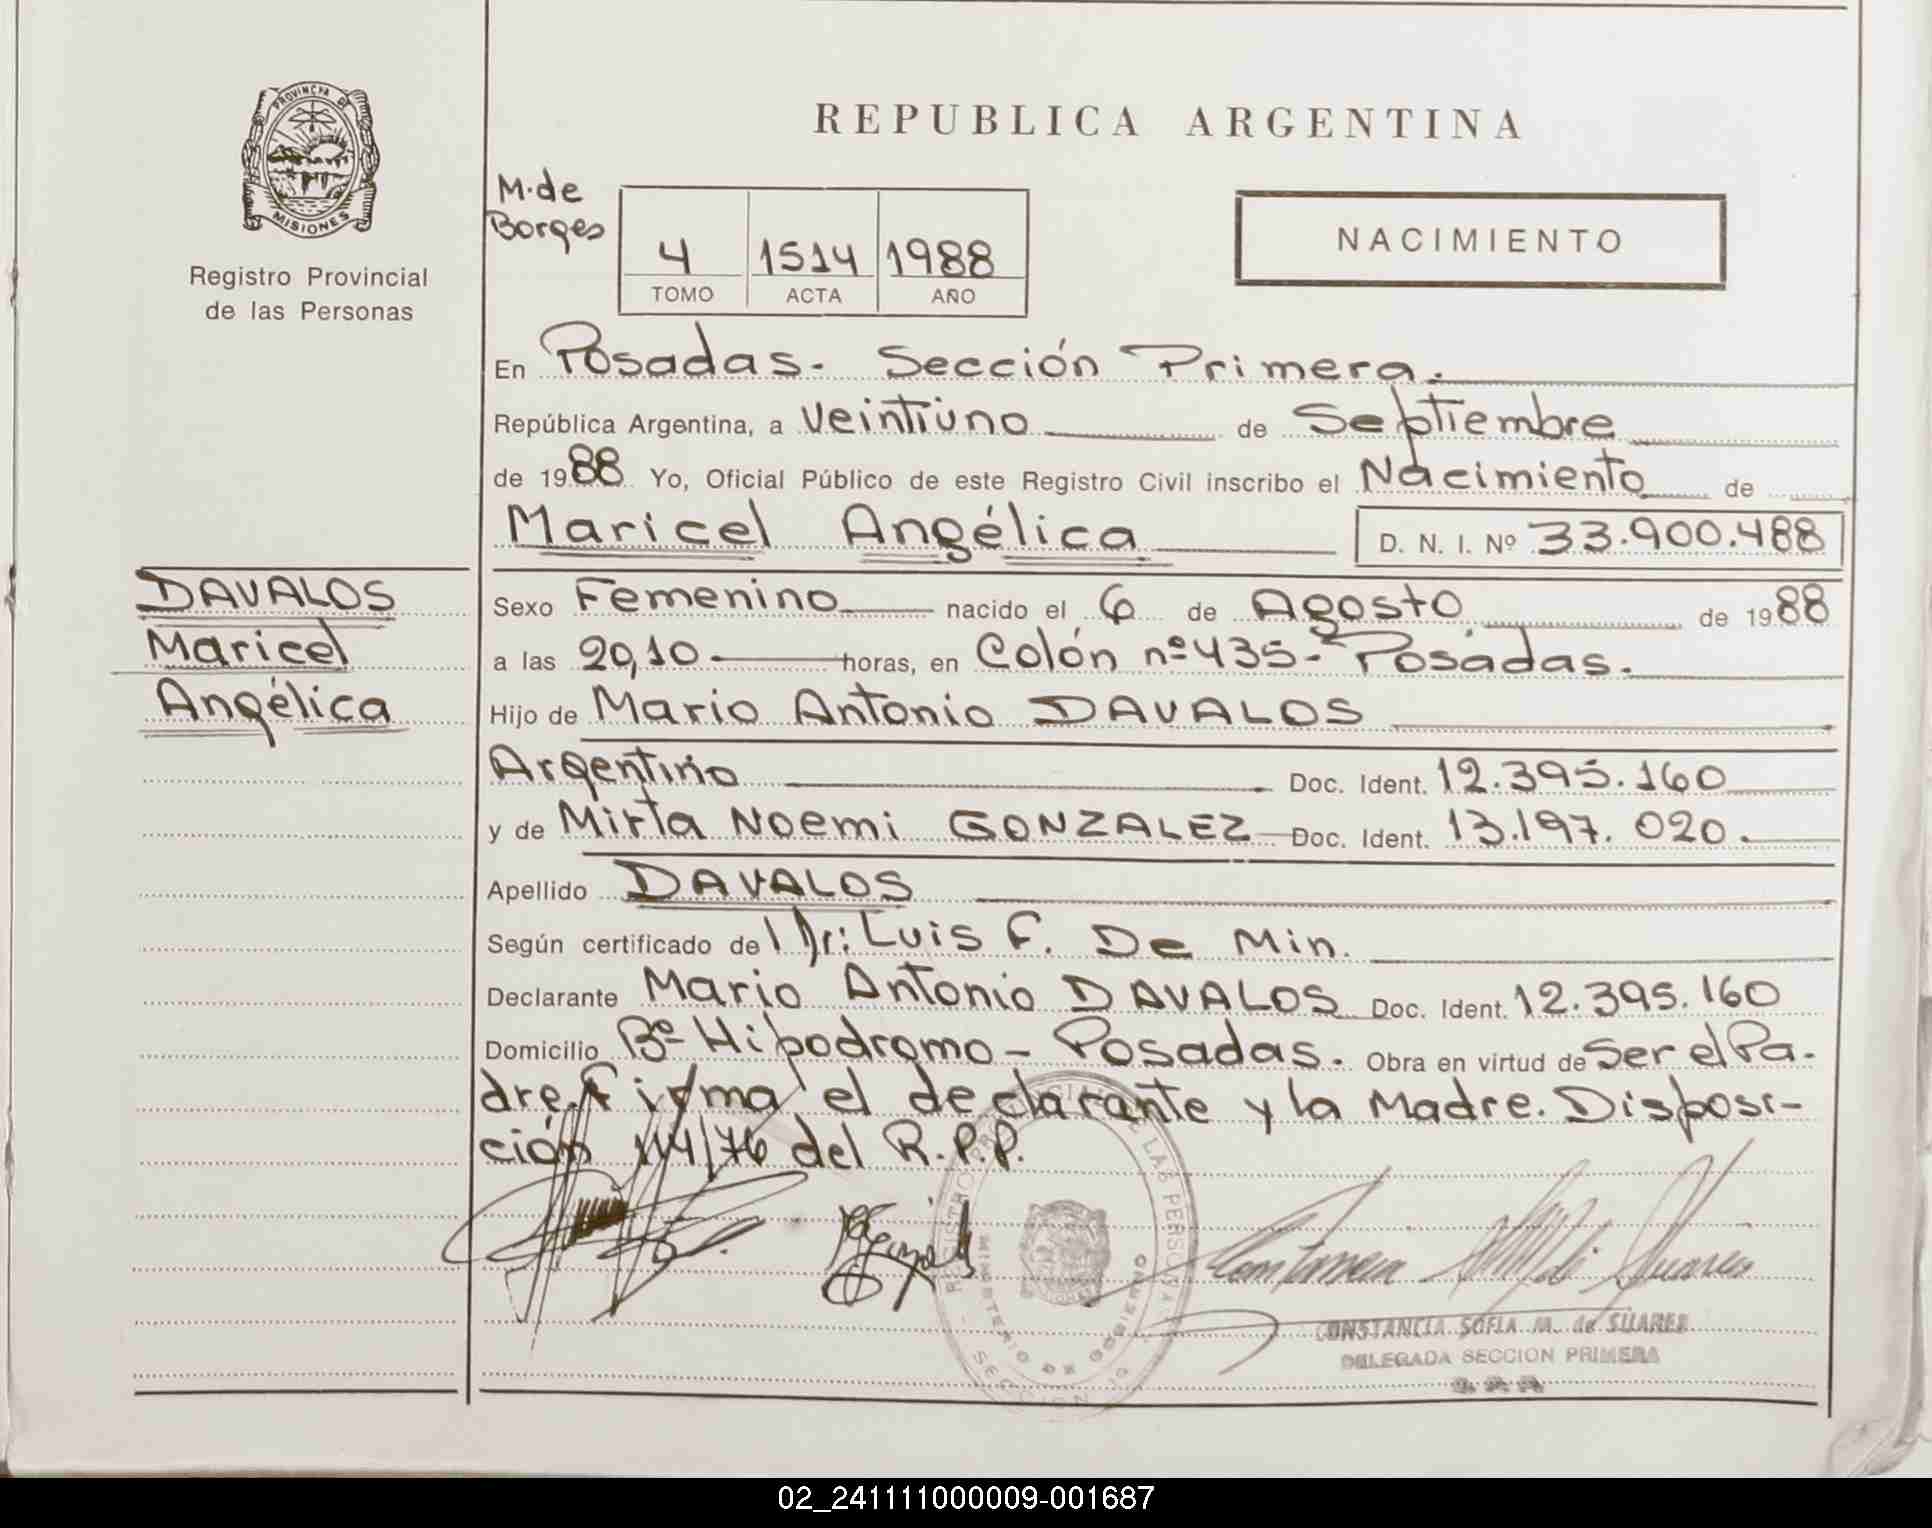 PROVINCIA DE
MISIONES
Registro Provincial
de las Personas
DAVALOS
Maricel
Angélica
REPUBLICA ARGENTINA
M. de
Borges
4 1514 1988
TOMO ACTA AÑO
NACIMIENTO
En Posadas - Sección Primera.
República Argentina, a veintiuno de Septiembre
de 1988 Yo, Oficial Público de este Registro Civil inscribo el Nacimiento de
Maricel Angélica D. N. I. Nº 33.900.488
Sexo Femenino nacido el 6 de Agosto de 1988
a las 20,10 horas, en Colón nº 435 - Posadas.
Hijo de Mario Antonio DAVALOS
Argentino Doc. Ident. 12.395.160
y de Mirta Noemi GONZALEZ Doc. Ident. 13.197.020.
Apellido DAVALOS
Según certificado del Dr: Luis F. De Min.
Declarante Mario Antonio DAVALOS Doc. Ident. 12.395.160
Domicilio Bº Hipodromo - Posadas. Obra en virtud de Ser el Pa-
dre. Firma el declarante y la Madre. Disposi-
ción 114/76 del R.P.P.
CONSTANCIA SOFIA M. de SUAREZ
DELEGADA SECCION PRIMERA
02_241111000009-001687